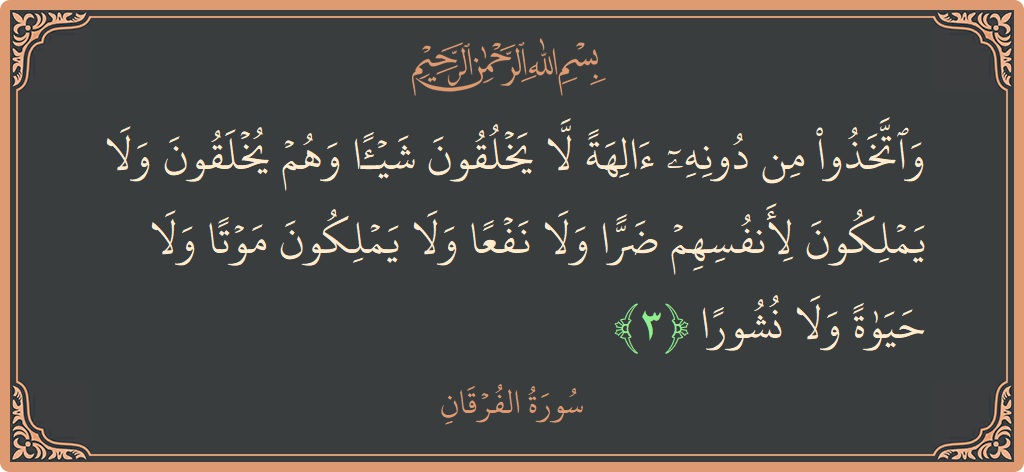 بِسْمِ اللَّهِ الرَّحْمَٰنِ الرَّحِيمِ
وَٱتَّخَذُوا۟ مِن دُونِهِۦٓ ءَالِهَةً لَّا يَخْلُقُونَ شَيْـًٔا وَهُمْ يُخْلَقُونَ وَلَا
يَمْلِكُونَ لِأَنفُسِهِمْ ضَرًّا وَلَا نَفْعًا وَلَا يَمْلِكُونَ مَوْتًا وَلَا
حَيَوٰةً وَلَا نُشُورًا ﴿٣﴾
سُورَةُ الفُرْقَانِ